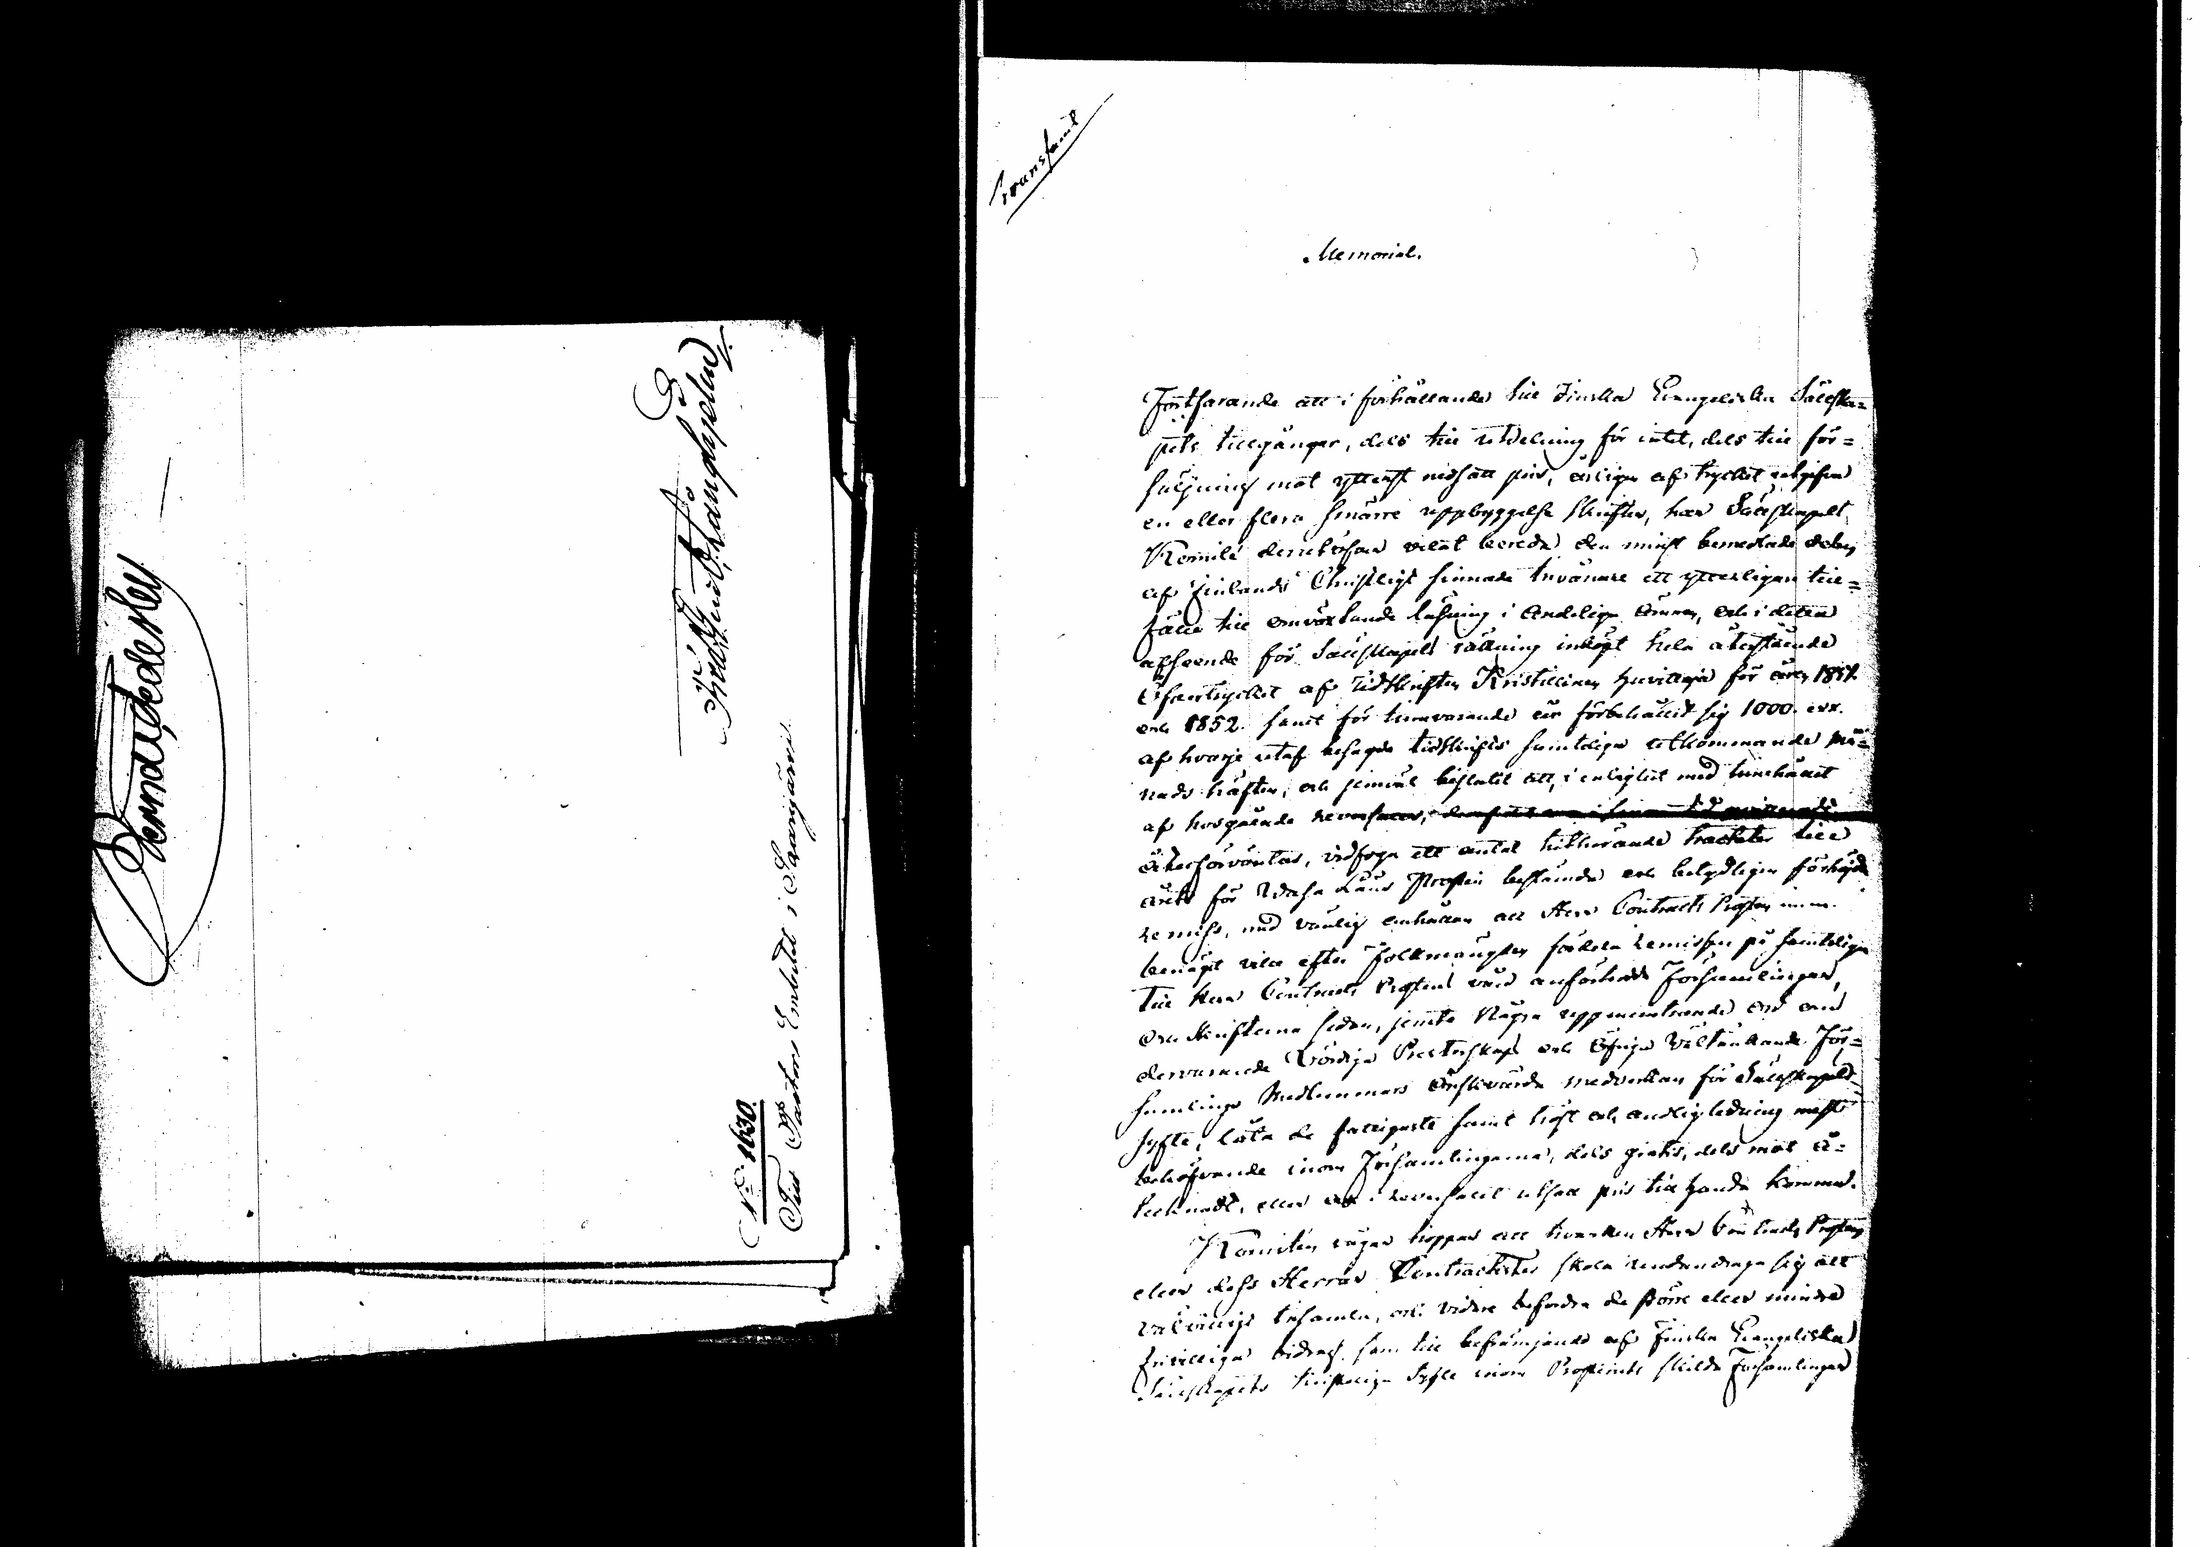 Fredr. Aug. Langhjelm
No 1630.
Till Pastors Embetet i Saarijärvi.
Transsumt
Memorial.
Fortfarande att i förhållande till Finska Evangeliska Sällska=
pets tillgångar, dels till utdelning för intet, dels till för=
säljning mot ytterst nedsatt pris, årligen af trycket utgifva
en eller flera smärre uppbyggelse skrifter, har Sällskapets
Komité derutöfver velat bereda den minst bemedlade delen
af Finlands Christligt sinnade Invånare ett ytterligare till=
fälle till omvexlande läsning i Andeliga ämnen, och i detta
afseende för Sällskapets räkning inköpt hela återstående
Öfvertrycket af tidskriften Kristillinen för åren 1851
och 1852. samt för innevarande år förbehållit sig 1000. exx.
af hvarje utaf besagde tidskrifts samteliga utkommande må=
nads häften, och jemväl beslutit att, i enlighet med innehållet
af hosgående reversaler,
återförväntas, vidfoga ett antal tillhörande traktater till
årets för Wasa Läns Prosteri bestämda och betydligen förhöjda
remiss, med vänlig anhållan att Herr Contracts Prosten m. m.
benäget ville efter Folkmängden fördela remissen på samteliga
till Herr Contracts Prostens vård anförtrodda Församlingar,
och skrifterna sedan, jemte några uppmuntrande ord om
dervarande Vördiga Presterskaps och öfriga Vältänkande För=
samlings Medlemmars önskvärda medverkan för Sällskapets
syfte, låta de fattigaste samt tröst och andlig ledning mest
behöfvande inom Församlingarna, dels gratis, dels mot å=
tecknadt, eller i reversalet utsatt pris till handa komma.
Komitén vågar hoppas att hvarken Herr Contracts Prosten
eller dess Herrar Contractister skola undandraga sig att
välvilligt insamla, och vidare befordra de större eller mindre
frivilliga bidrag som till befrämjande af Finska Evangeliska
Sällskapets syfte inom Prosteriets skilda Församlingar